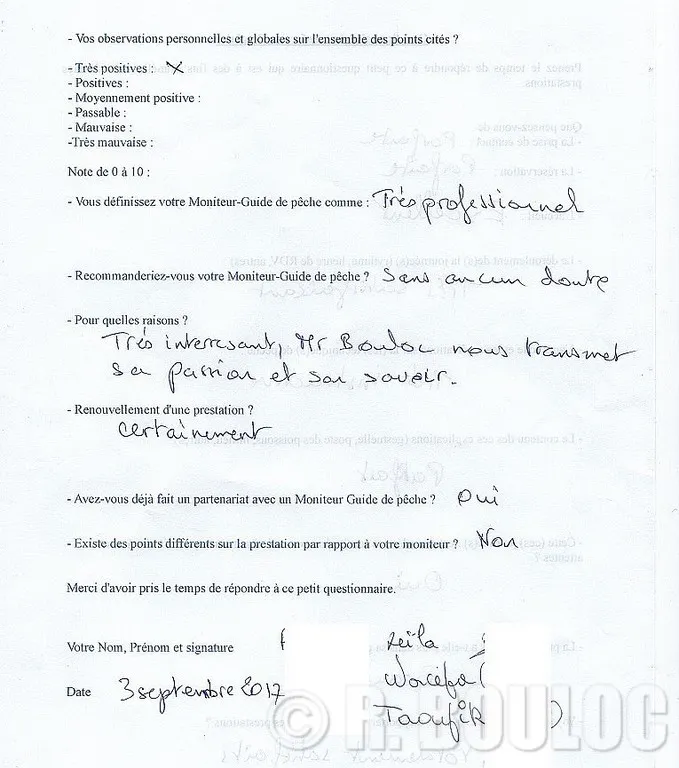 - Vos observations personnelles et globales sur l'ensemble des points cités ?
- Très positives : X
- Positives :
- Moyennement positive :
- Passable :
- Mauvaise :
-Très mauvaise :
Note de 0 à 10 :
- Vous définissez votre Moniteur-Guide de pêche comme : Trés professionnel
- Recommanderiez-vous votre Moniteur-Guide de pêche ? Sans aucun doute
- Pour quelles raisons ?
Trés interesant, Mr Bouloc nous transmet
sa passion et son savoir.
- Renouvellement d'une prestation ?
certainement
- Avez-vous déjà fait un partenariat avec un Moniteur Guide de pêche ? Oui
- Existe des points différents sur la prestation par rapport à votre moniteur ? Non
Merci d'avoir pris le temps de répondre à ce petit questionnaire.
Votre Nom, Prénom et signature
Date 3 septembre 2017
Taoufik
© R. BOULOC